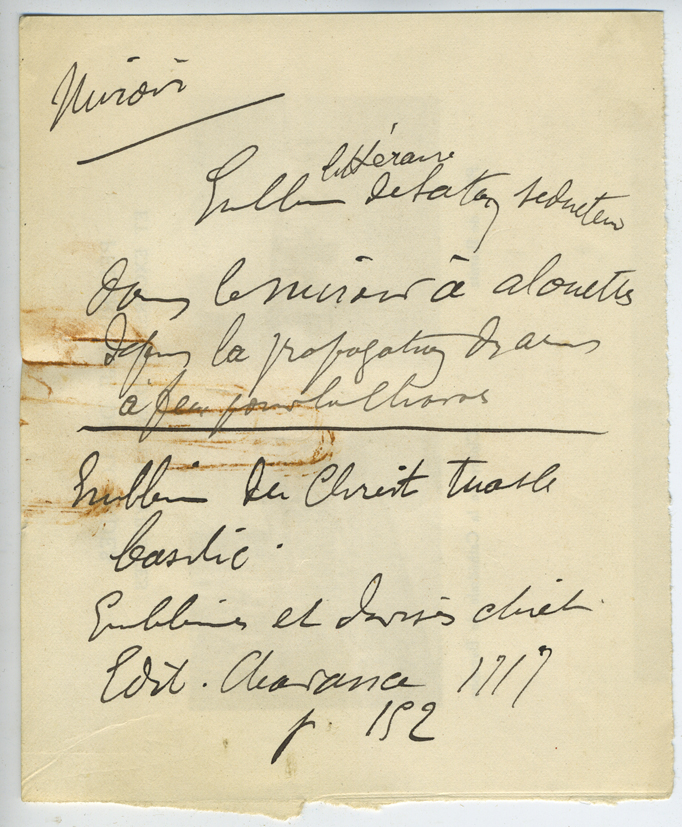 Miroir
littéraire
Emblème de Satan séducteur
dans le miroir à alouettes
depuis la propagation des armes
à feu pour la chasse
Emblème du Christ tuant le
basilic.
Emblèmes et devises chrét.
Edit. Chavance 1717
p. 152